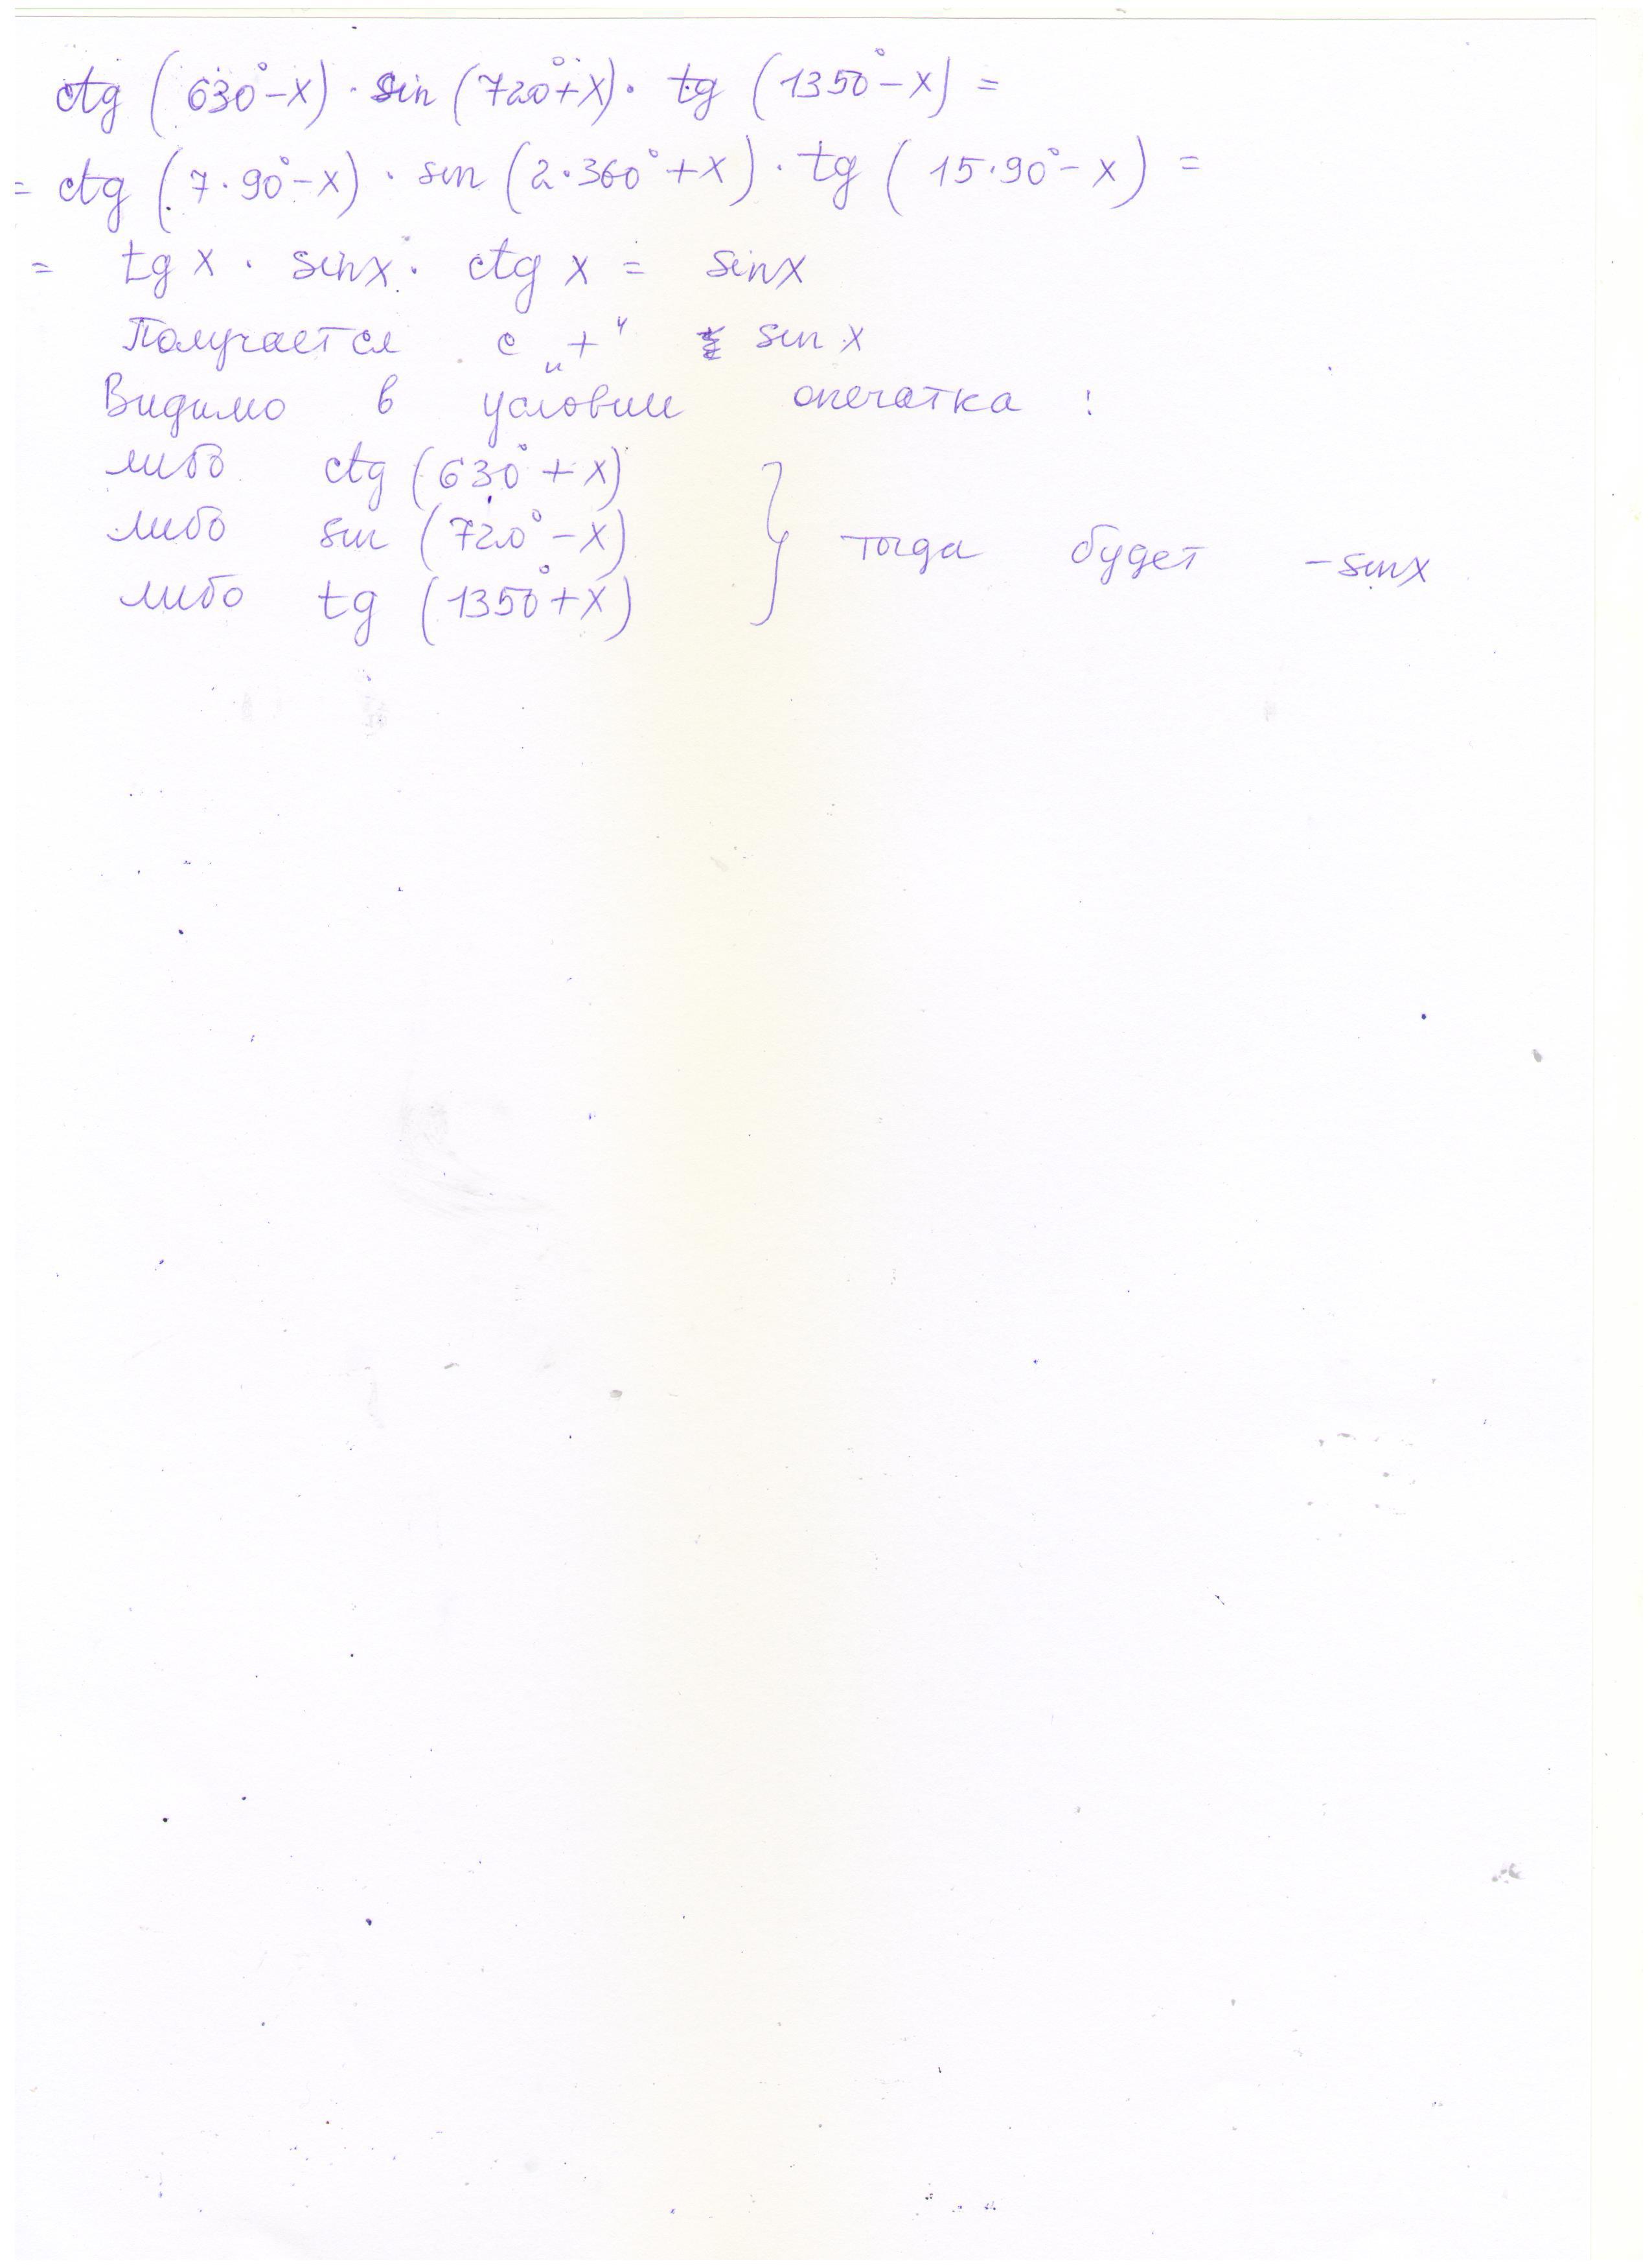 ctg (630°-x) · sin (720°+x) · tg (1350°-x) =
= ctg (7·90°-x) · sin (2·360°+x) · tg (15·90°-x) =
= tg x · sin x · ctg x = sin x
Получается с „+“ sin x
Видимо в условии опечатка :
либо ctg (630°+x)
либо sin (720°-x) } тогда будет -sin x
либо tg (1350°+x)